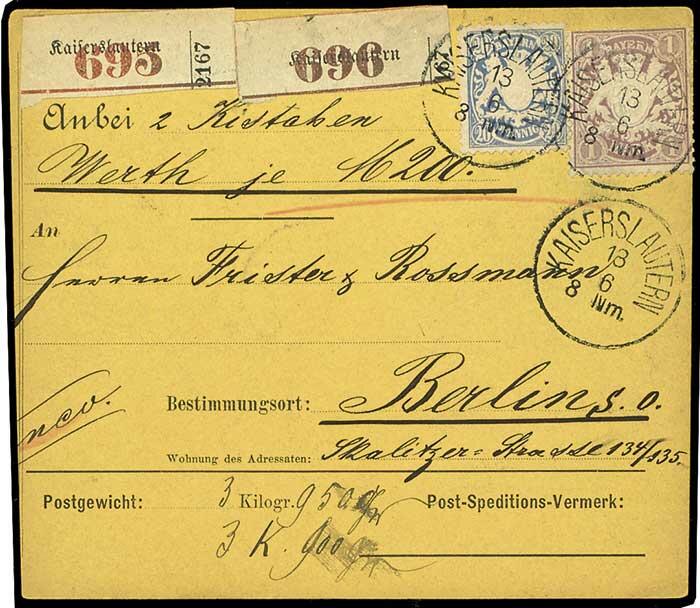 Kaiserslautern 695 2167
Kaiserslautern 696
BAYERN 1
20 PFENNIG 20
KAISERSLAUTERN 13 6 8 Nm.
KAISERSLAUTERN 13 6 8 Nm.
Anbei 2 Kistchen
Werth je M 200.
An
Herren Frister & Rossmann
KAISERSLAUTERN
13
6
8 Nm.
Bestimmungsort: Berlin S. O.
Wohnung des Adressaten: Skalitzer-Strasse 134/135.
Postgewicht: 3 Kilogr. 950 gr Post-Speditions-Vermerk:
3 K. 900 gr